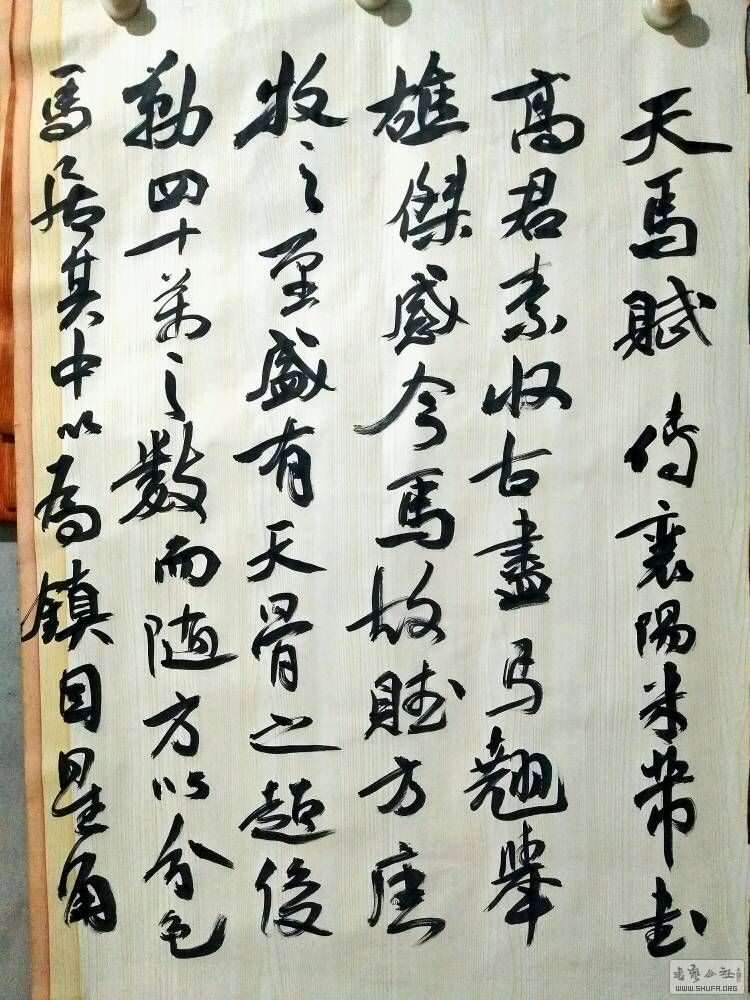 天馬賦 襄陽米芾书
高君素收古畫馬翹舉
雄傑感今馬故賦方唐
牧之至盛有天骨之超俊
勒四十萬之數而随方以分色
馬居其中以為鎮目星角
書藝公社
WWW.SHUFA.ORG